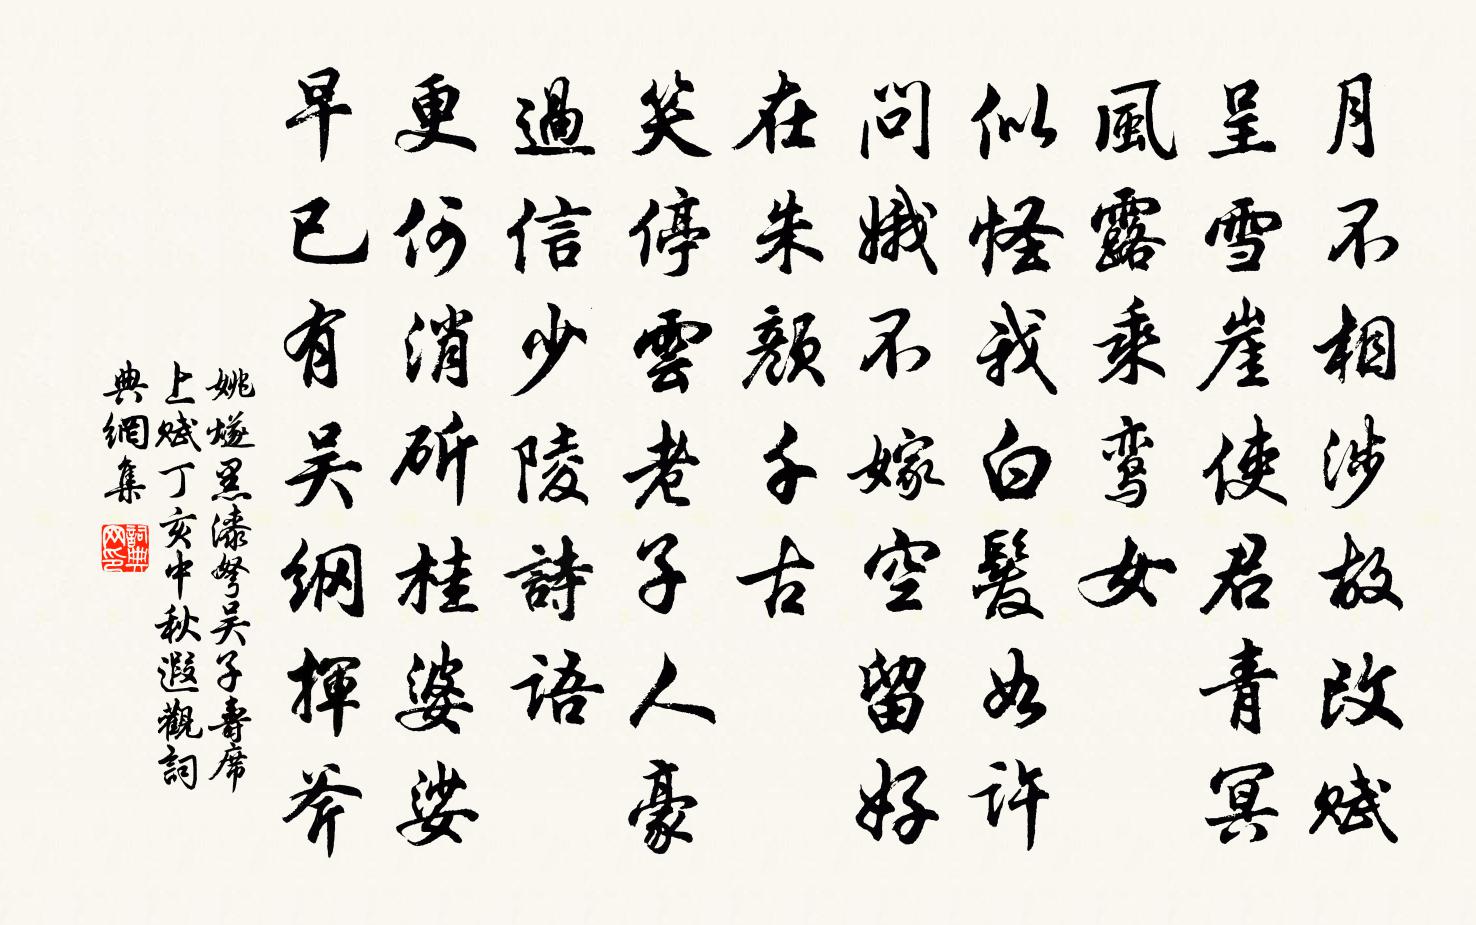 月不相涉故改賦
呈雪崖使君青冥
風露乘鸾女
似怪我白髮如許
問娥不嫁空留好
在朱顔千古
笑停雲老子人豪
過信少陵詩語
更何消斫桂婆娑
早已有吴纲揮斧
姚燧黑漆弩吴子壽席
上賦丁亥中秋遐觀詞
典網集
詞典网印